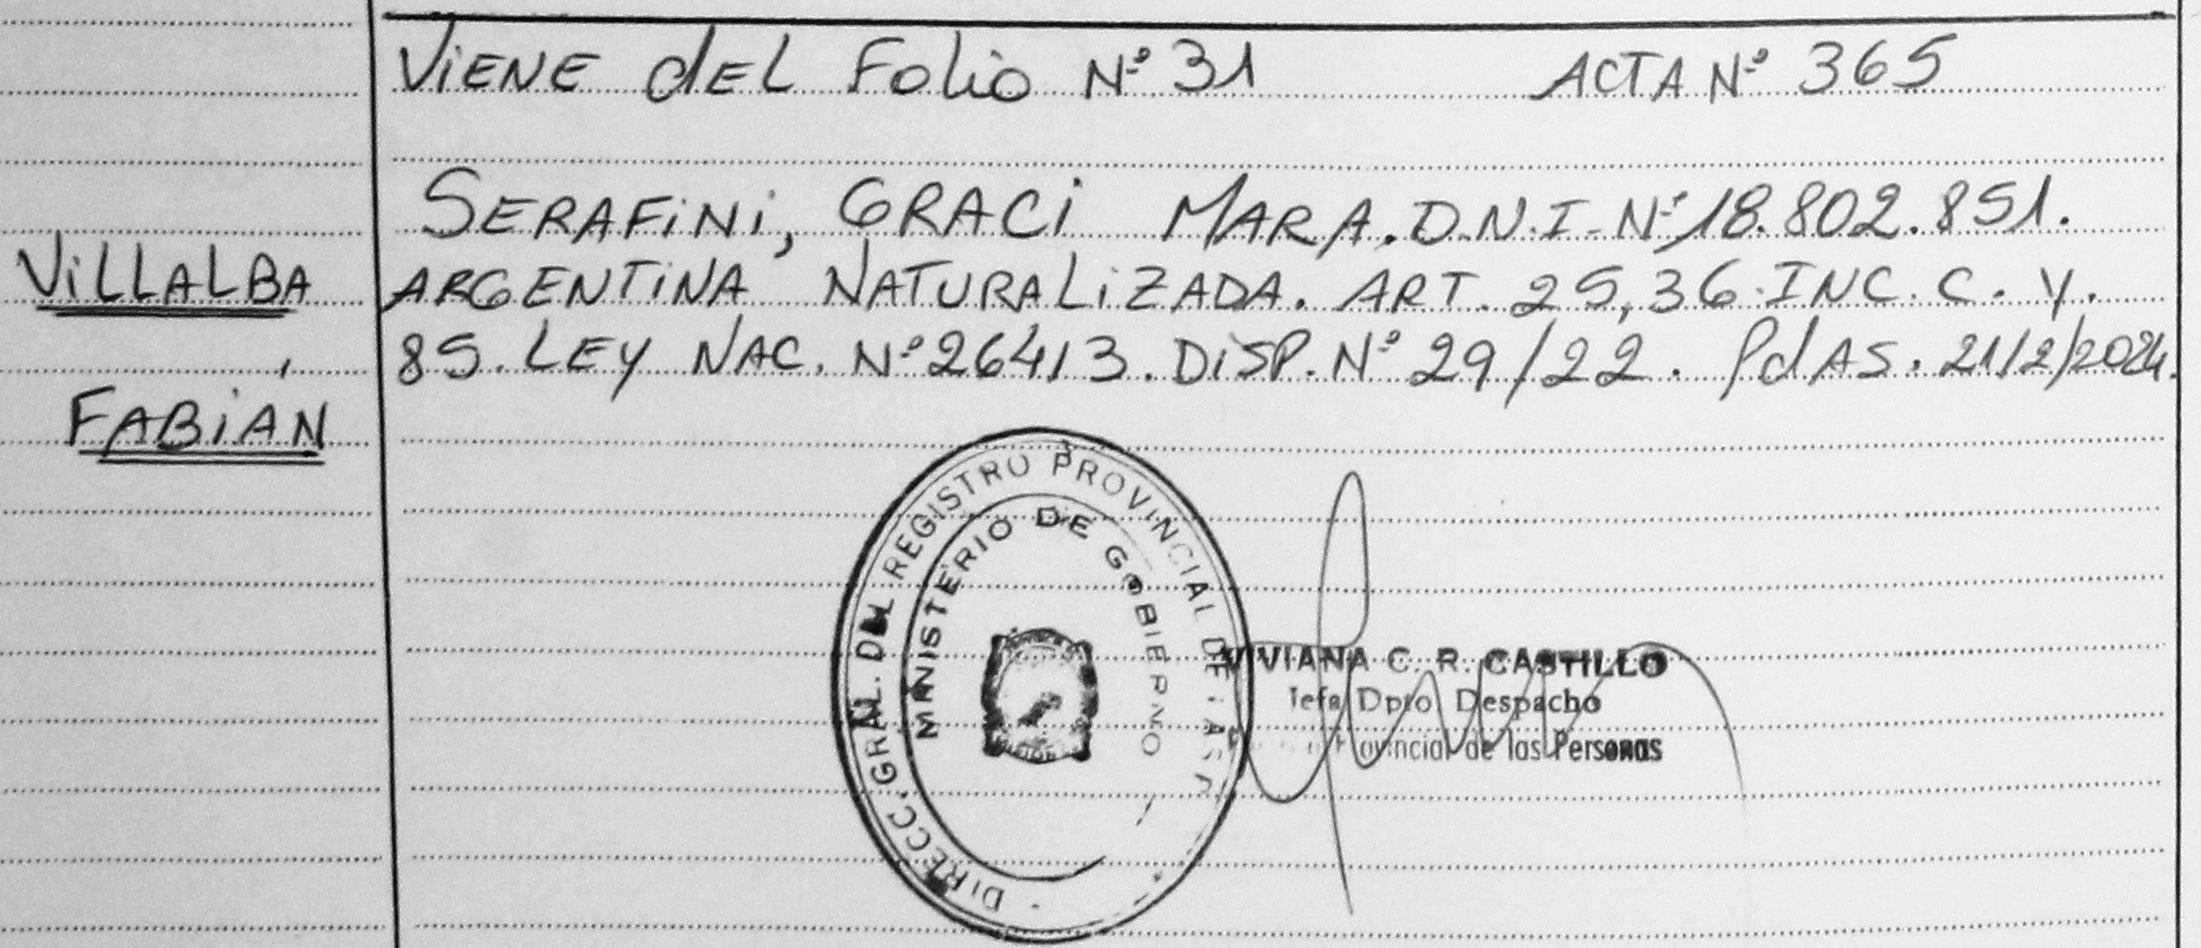 ViENE dEL Folio Nº 31 ACTA Nº 365
SERAFiNi, GRACi MARA. D.N.I-Nº 18.802.851.
ARGENTiNA NATURALiZADA. ART. 25,36 INC. C. Y.
85. LEY NAC. Nº 26413. DiSP. Nº 29/22. PdAS. 21/2/2024.
ViLLALBA
,
FABiÁN
DIRECC. GRAL. DEL REGISTRO PROVINCIAL DE LAS
MINISTERIO DE GOBIERNO
VIVIANA C. R. CASTILLO
Jefa Dpto Despacho
Provincial de las Personas